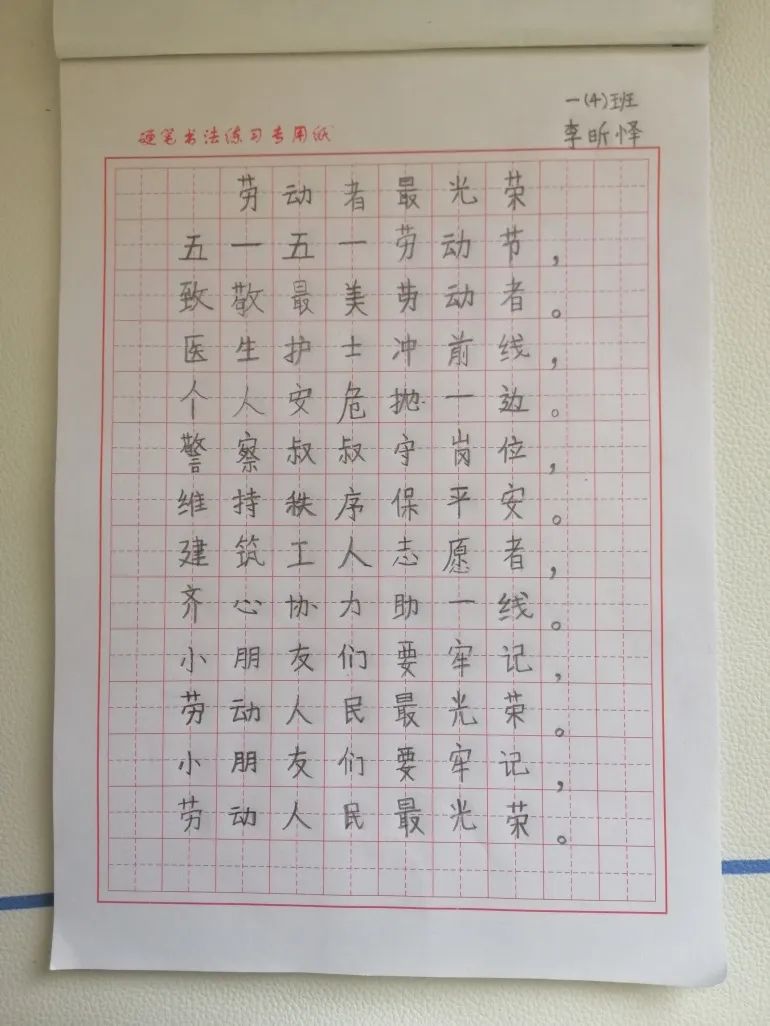 一(4)班
硬笔书法练习专用纸
李昕怿
劳动者最光荣
五一五一劳动节，
致敬最美劳动者。
医生护士冲前线，
个人安危抛一边。
警察叔叔守岗位，
维持秩序保平安。
建筑工人志愿者，
齐心协力助一线。
小朋友们要牢记，
劳动人民最光荣。
小朋友们要牢记，
劳动人民最光荣。